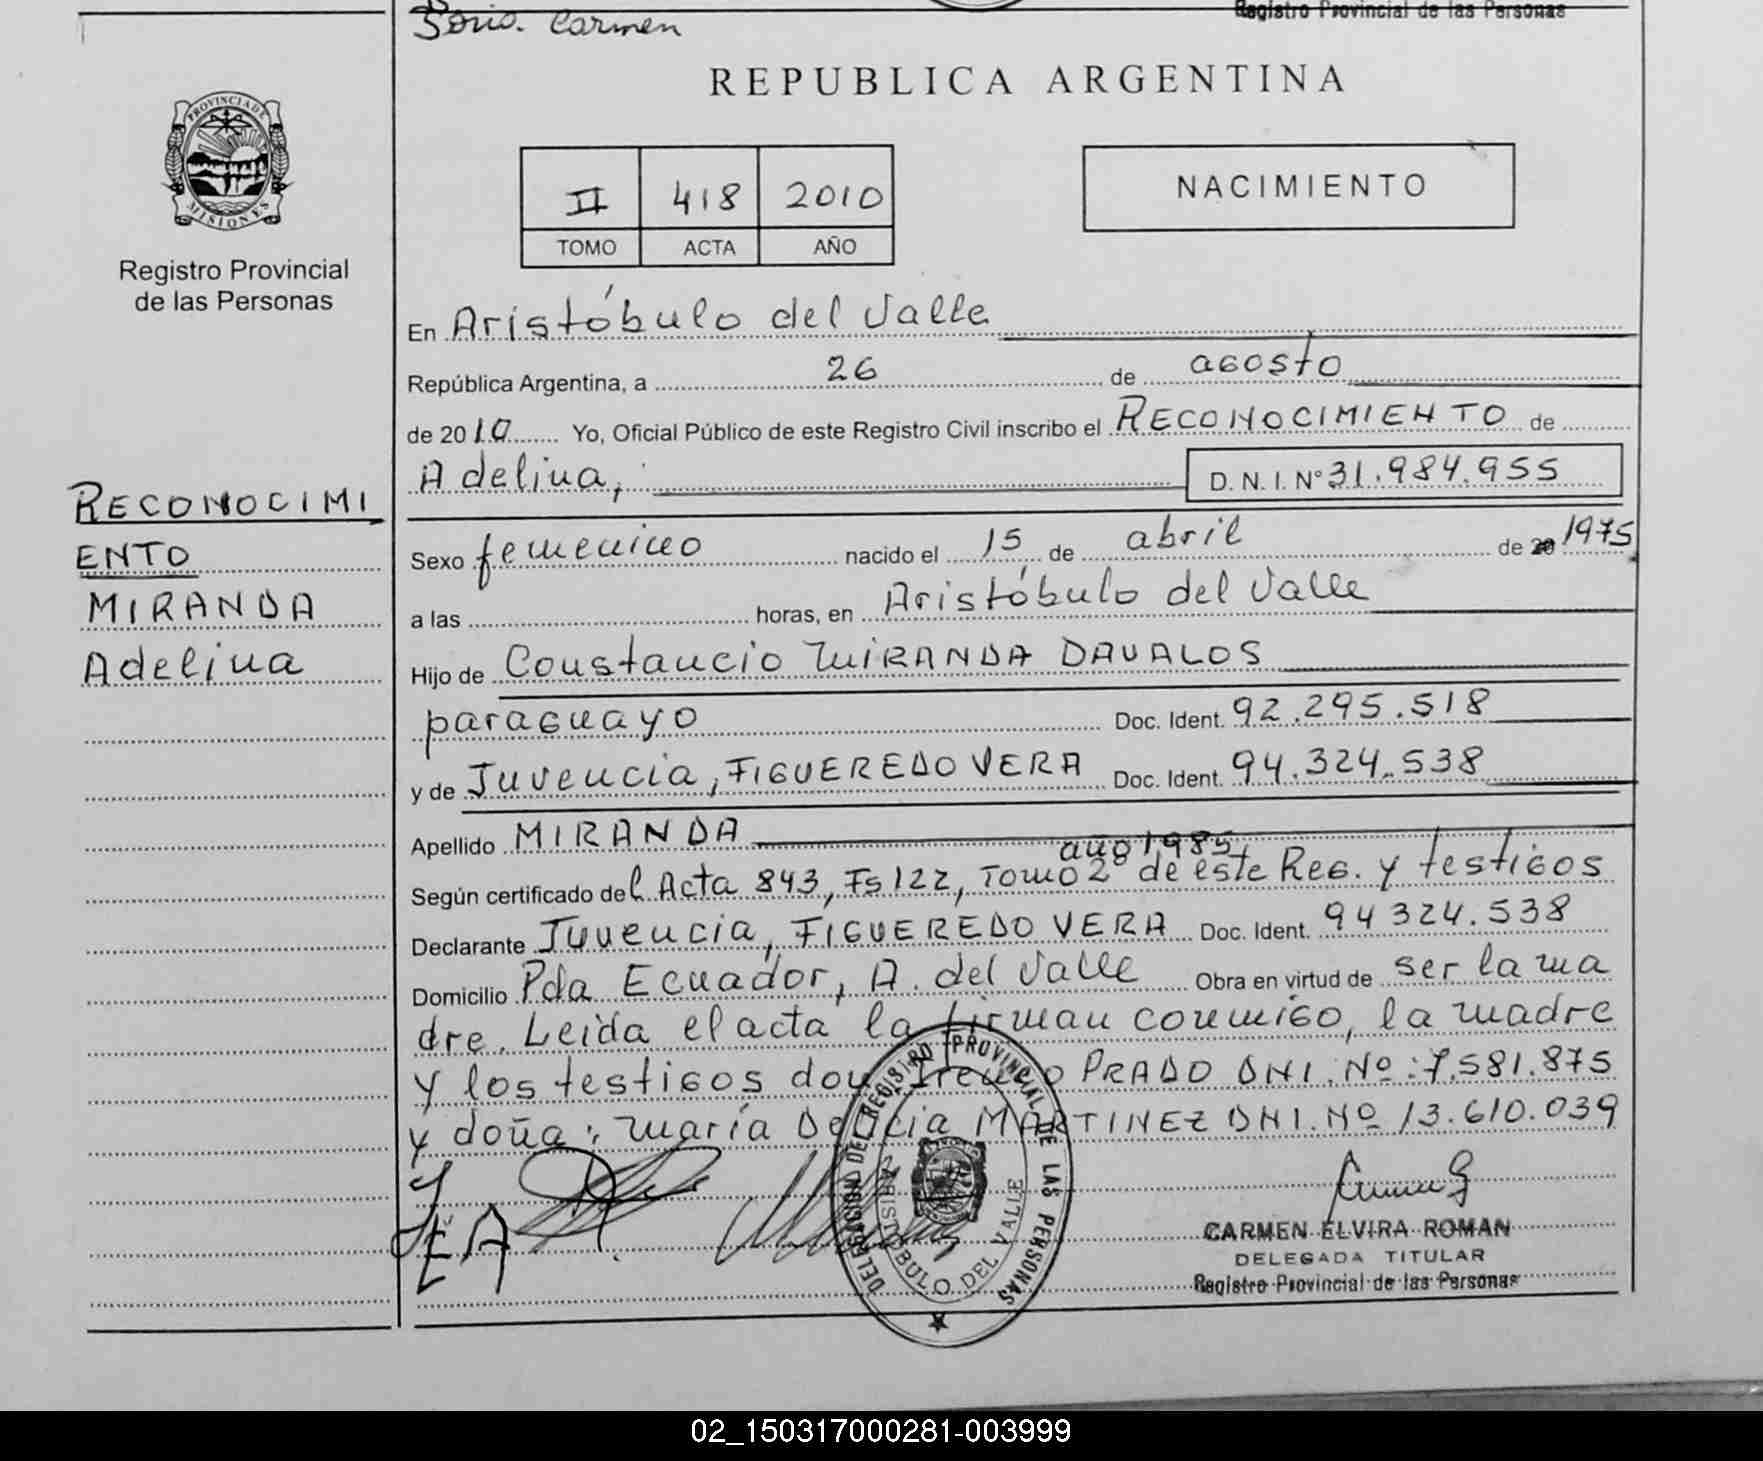 Soria. Carmen
Registro Provincial de las Personas
REPUBLICA ARGENTINA
PROVINCIA DE
MISIONES
Registro Provincial
de las Personas
II 418 2010
TOMO ACTA AÑO
NACIMIENTO
En Aristóbulo del Valle
República Argentina, a 26 de agosto
de 2010 Yo, Oficial Público de este Registro Civil inscribo el RECONOCIMIENTO de
Adelina, D.N.I. N° 31.984.955
RECONOCIMI
ENTO
MIRANDA
Adelina
Sexo femenino nacido el 15 de abril de 20 1975
a las horas, en Aristóbulo del Valle
Hijo de Constancio MIRANDA DAVALOS
paraguayo Doc. Ident. 92.295.518
y de Juvencia, FIGUEREDO VERA Doc. Ident. 94.324.538
Apellido MIRANDA
año 1985,
Según certificado del Acta 843, Fs 122, Tomo 2° de este Reg. y testigos
Declarante Juvencia, FIGUEREDO VERA Doc. Ident. 94324.538
Domicilio Pda Ecuador, A. del Valle Obra en virtud de ser la ma
dre. Leída el acta la firman conmigo, la madre
y los testigos don Ireneo PRADO DNI. Nº: 7.581.875
y doña: María Delicia MARTINEZ DNI. Nº 13.610.039
DELEGACION DEL REGISTRO PROVINCIAL DE LAS PERSONAS
ARISTOBULO DEL VALLE
CARMEN ELVIRA ROMAN
DELEGADA TITULAR
Registro Provincial de las Personas
02_150317000281-003999